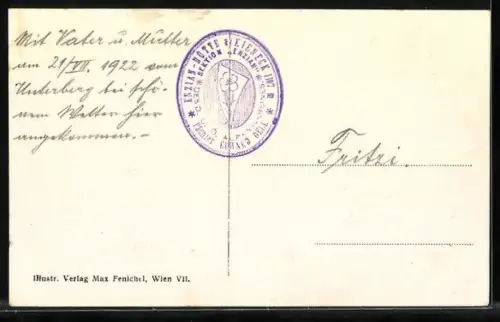 Mit Vater u. Mutter
am 21/VII. 1922 vom
Unterberg bei schö-
nem Wetter hier
angekommen.-
ENZIAN-HÜTTE KIENECK 1107 m
SEKTION "ENZIAN"
Fritzi.
Illustr. Verlag Max Fenichel, Wien VII.